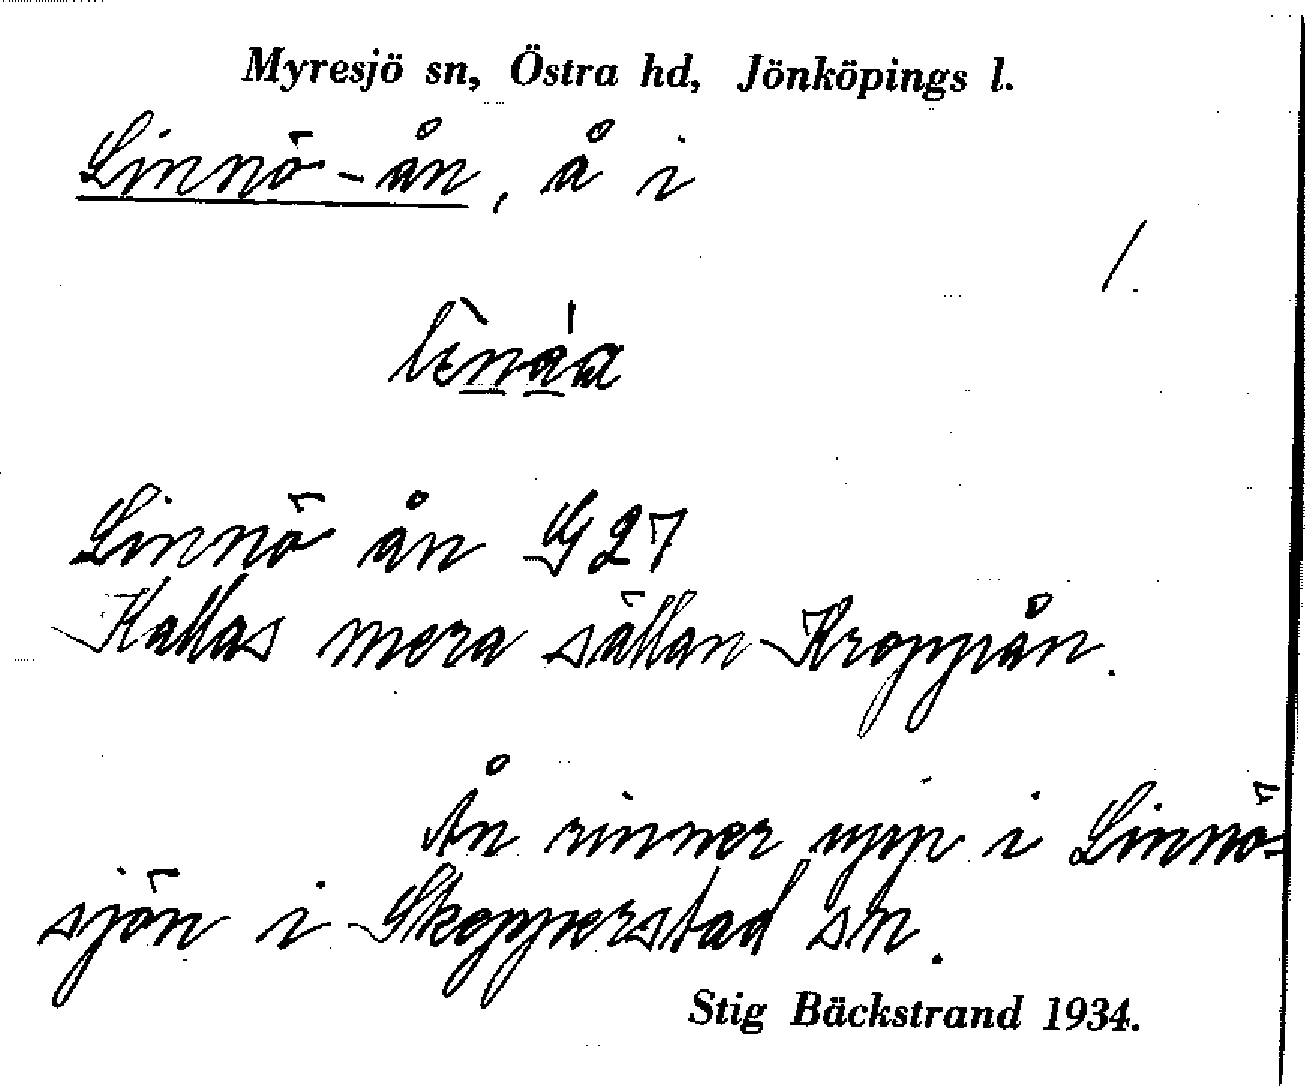 Myresjö sn, Östra hd, Jönköpings l.
Linnö-ån, å i
/.
Linnö ån G 27
Kallas mera sällan Kroppån.
Ån rinner upp i Linnö-
sjön i Skepperstad sn.
Stig Bäckstrand 1934.